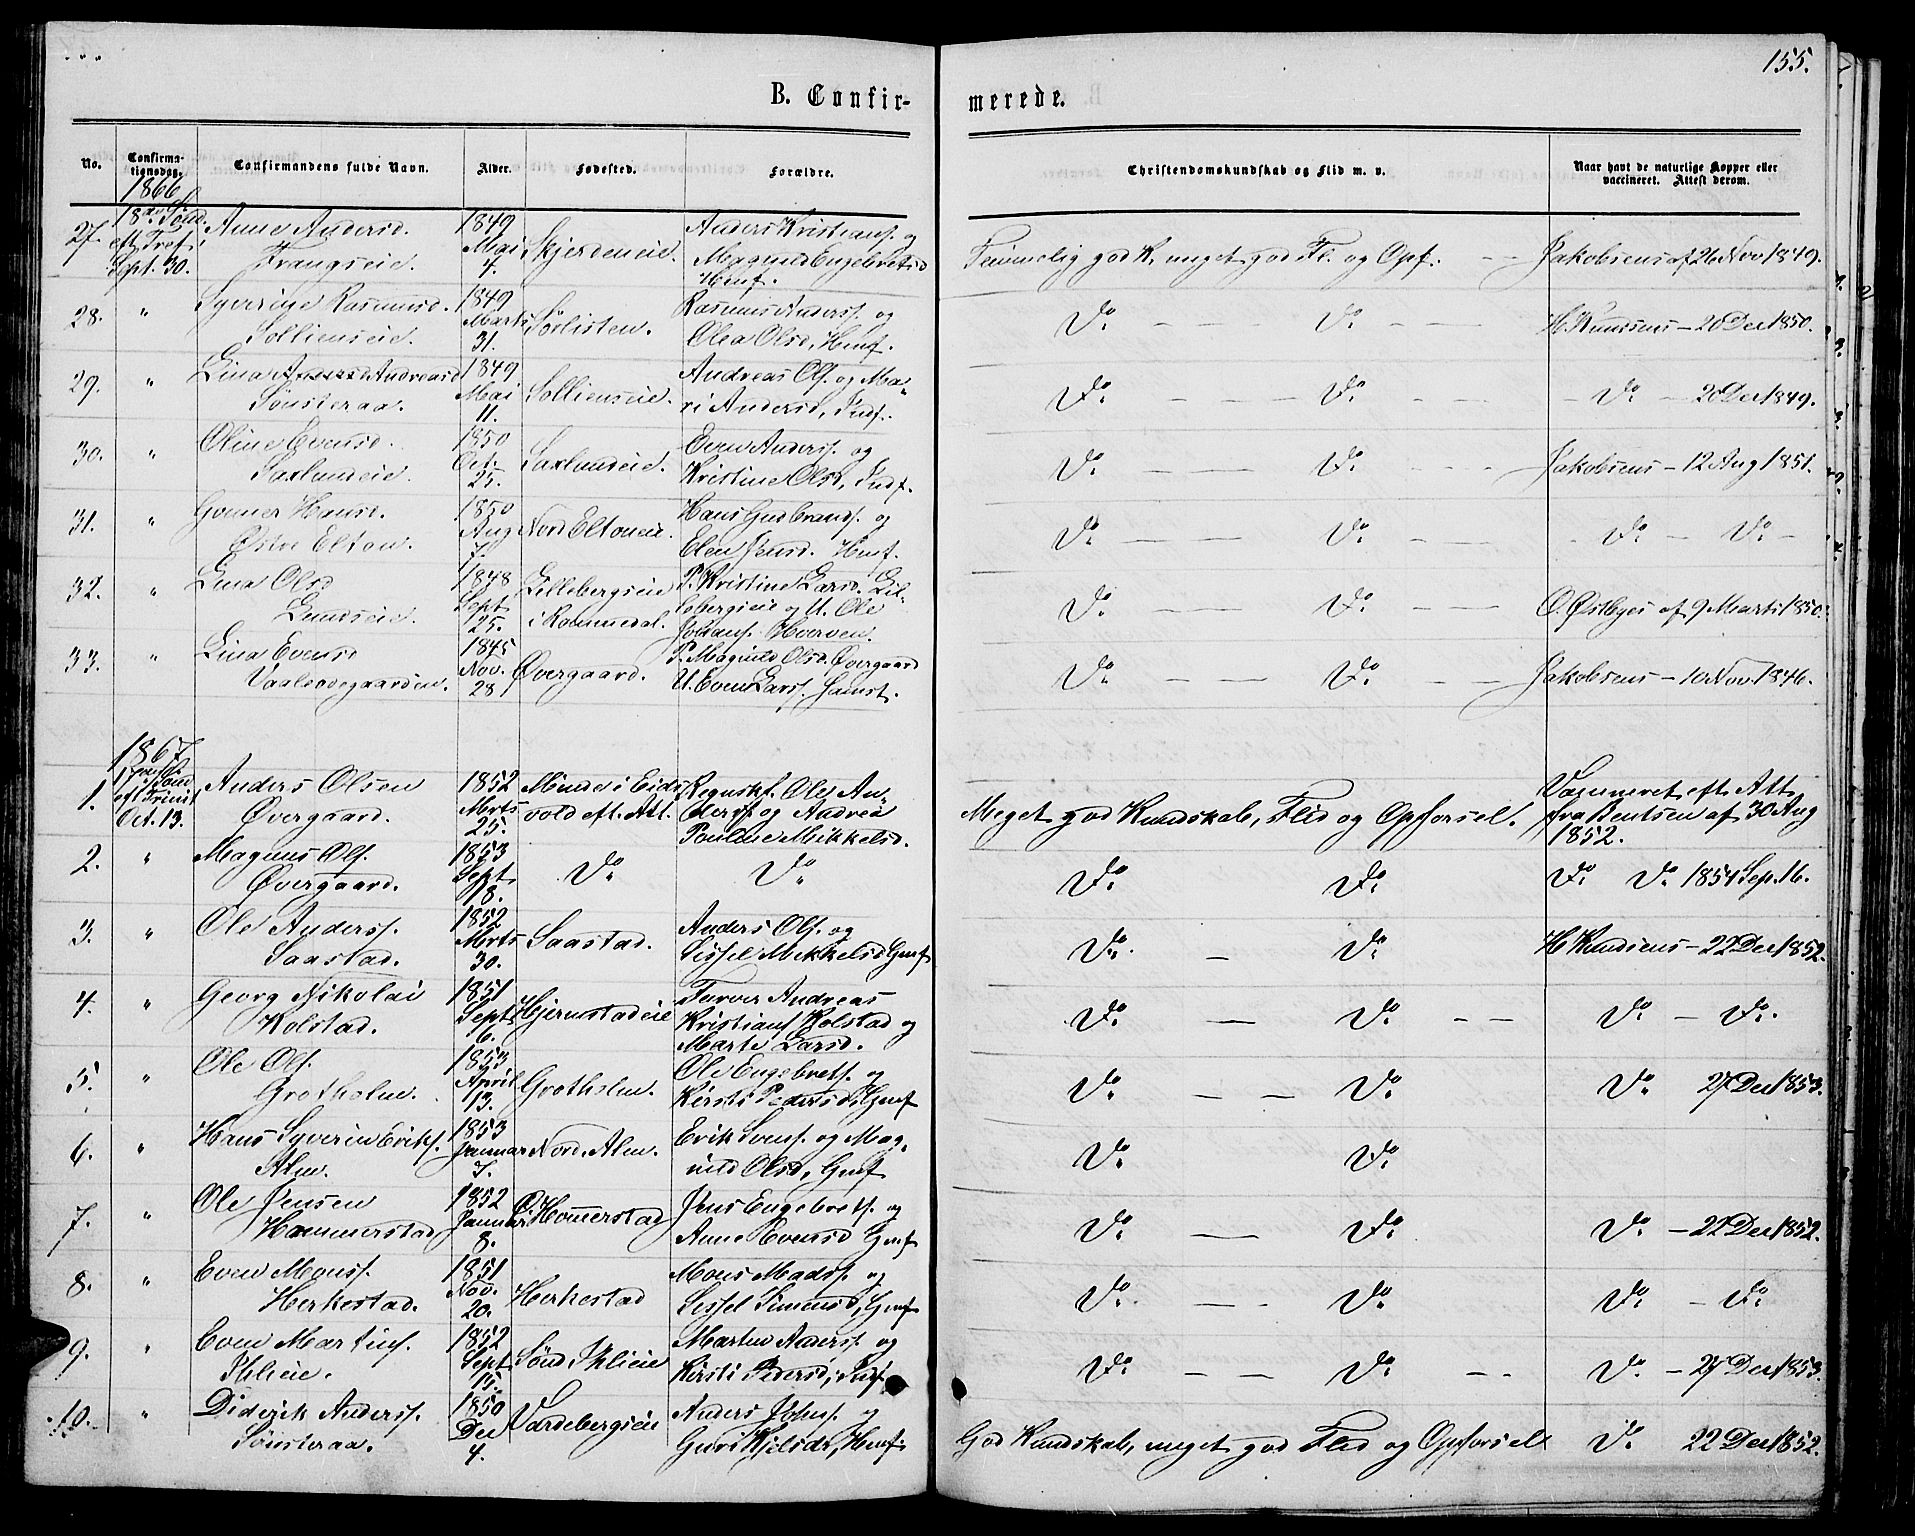 155.
B. Confir-
merede.
No.
Confirma-
tionsdag.
Confirmandens fulde Navn.
Alder.
Fødested.
Forældre.
Christendomskundskab og Flid m. v.
Naar havt de naturlige Kopper eller
vaccineret. Attest derom.
1866
27. 18de Sønd. eft. Tref. Sept. 30. Anne Andersd. Frangseie. 1849 Mai 4. Skjerdeneie. Anders Kristians. og Magnild Engebretsd Hmf. Temmelig god K. meget god Fl. og Opf. — — Jakobsens af 26 Nov 1849.
28. " Syverine Rasmusd. Sollienseie. 1849 Marts 31. Sørlisten. Rasmus Anderss. og Olea Olsd, Hmf. Do — — — Do — — — H Knudsens — 20 Dec 1850.
29. " Lina Andreasd Sønsteraa. 1849 Mai 11. Sollienseie. Andreas Ols. og Ma- ri Andersd, Indf. Do — — — Do — — — Do — 20 Dec 1849.
30. " Oline Evensd. Saxlundeie. 1850 Oct. 25. Saxlundeie. Even Anderss. og Kristine Olsd, Indf. Do — — — Do — — — Jakobsens — 12 Aug 1851.
31. " Gunner Hansd. Østre Elton. 1850 Aug 7. Nord Eltoneie. Hans Gudbrands. og Elen Jensd. Hmf. Do — — — Do — — — Do — Do —
32. " Lina Olsd Lundseie. 1848 Sept 25. Lillebergseie i Rommedal. P. Kristine Larsd. Lil- lebergseie og U. Ole Johans. Hverven. Do — — Do — — O. Østbyes af 9 Marts 1850.
33. " Lina Evensd Vaaleødegaarden. 1845 Nov. 28 Øvergaard. P. Magnild Olsd. Øvergaard U. Even Larss. Do — — — Do — — Jakobsens — 10 Nov. 1846.
1867
1. eft Trinit. Oct. 13. Anders Olsen Øvergaard. 1852 Mrts 25. Minde i Eids- vold eft. Att. Regnskf. Ole An- derss. og Andrea Pouline Mikkelsd. Meget god Kundskab, Flid og Opførsel. Vaccineret eft Att fra Bentsen af 30 Aug 1852.
2. " Magnus Ols. Øvergaard. 1853 Sept 18. Do Do Do Do Do Do 1854 Sep. 16.
3. " Ole Anderss. Saastad. 1852 Mrts 30. Saastad. Anders Ols. og Sissel Mikkelsd Gmf. Do — Do H Knudsens — 22 Dec 1852.
4. " Georg Nikolai Kolstad. 1851 Sept 6. Hjernstadeie Farver Andreas Kristians Kolstad og Marte Larsd. Do — Do — — Do — Do.
5. " Ole Ols. Grotholm. 1853 April 13. Grotholm. Ole Engebrets. og Kirsti Pedersd, Gmf Do — — Do Do 27 Dec 1853.
6. " Hans Syverin Eriks. Alm. 1853 Januar 7. Nord. Alm. Erik Svens. og Mag- nild Olsd, Gmf Do Do
7. " Ole Jensen Hammerstad 1852 Januar 8. Ø. Hommerstad Jens Engebrets. og Anne Evensd Gmf Do — Do Do — 22 Dec 1852.
8. " Even Monss. Herkestad. 1851 Nov. 20. Herkestad Mons Madss. og Sissel Simensd, Gmf. Do — — Do Do — Do
9. " Even Martins. Skleie. 1852 Sept 15. Sønd. Skleie Martin Anderss. og Kirsti Iversd, Indf. Do — — Do — — Do — 27 Dec 1853.
10. " Diderik Anderss. Sønsteraa. 1850 Dec 4. Vardebergseie Anders Johns. og Guri Kjelsdr, Hmf. God Kundskab, meget god Flid og Opførsel Do 22 Dec 1852.